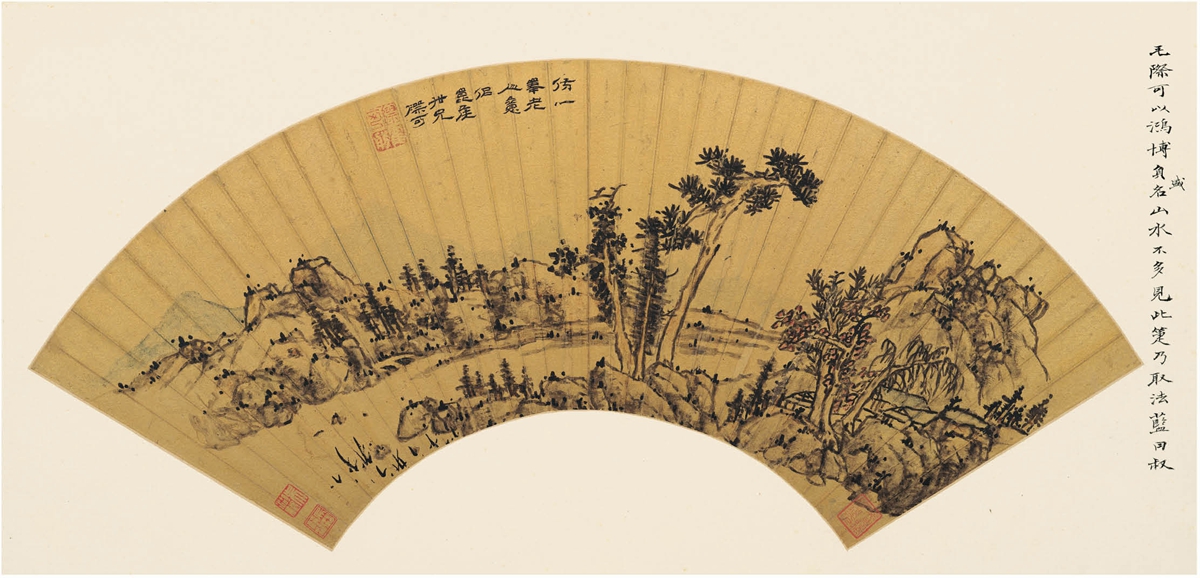 毛際可以鴻博負盛名山水不多見此箑乃取法藍田叔
仿一
峯老
人意
佀
崖
兄
際可